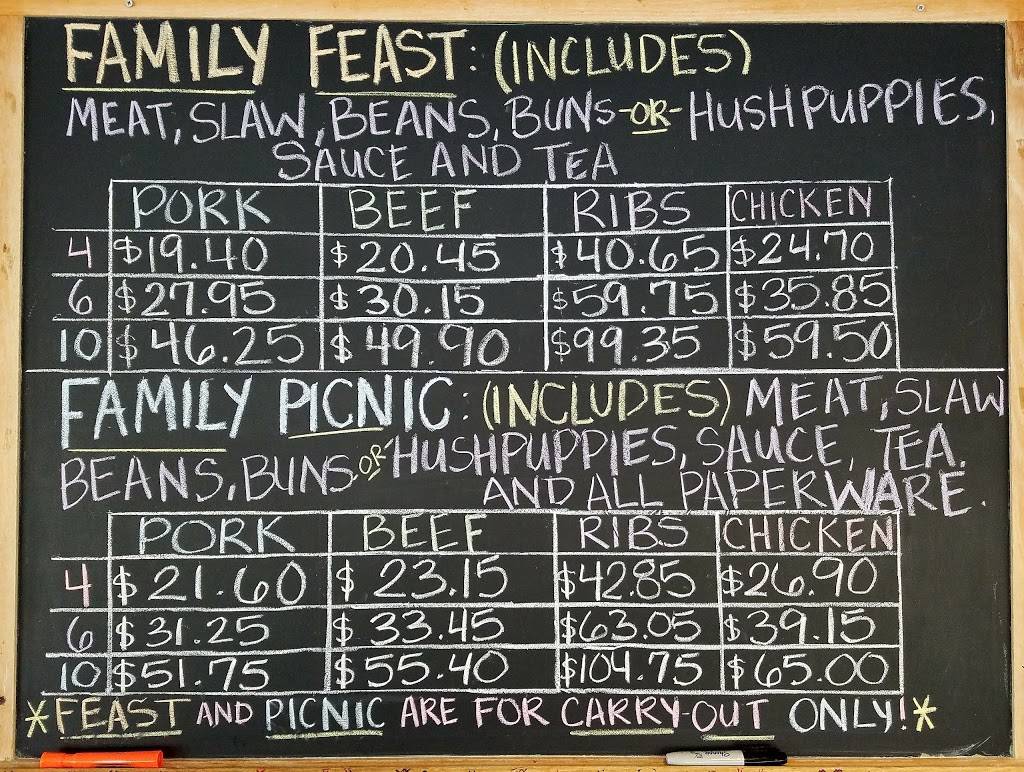 FAMILY FEAST: (INCLUDES)
MEAT, SLAW, BEANS, BUNS -OR- HUSHPUPPIES,
SAUCE AND TEA
PORK BEEF RIBS CHICKEN
4 $19.40 $20.45 $40.65 $24.70
6 $27.95 $30.15 $59.75 $35.85
10 $46.25 $49.90 $99.35 $59.50
FAMILY PICNIC: (INCLUDES) MEAT, SLAW
BEANS, BUNS -OR- HUSHPUPPIES, SAUCE, TEA.
AND ALL PAPERWARE.
PORK BEEF RIBS CHICKEN
4 $21.60 $23.15 $42.85 $26.90
6 $31.25 $33.45 $63.05 $39.15
10 $51.75 $55.40 $104.75 $65.00
*FEAST AND PICNIC ARE FOR CARRY-OUT ONLY!*
Sharpie